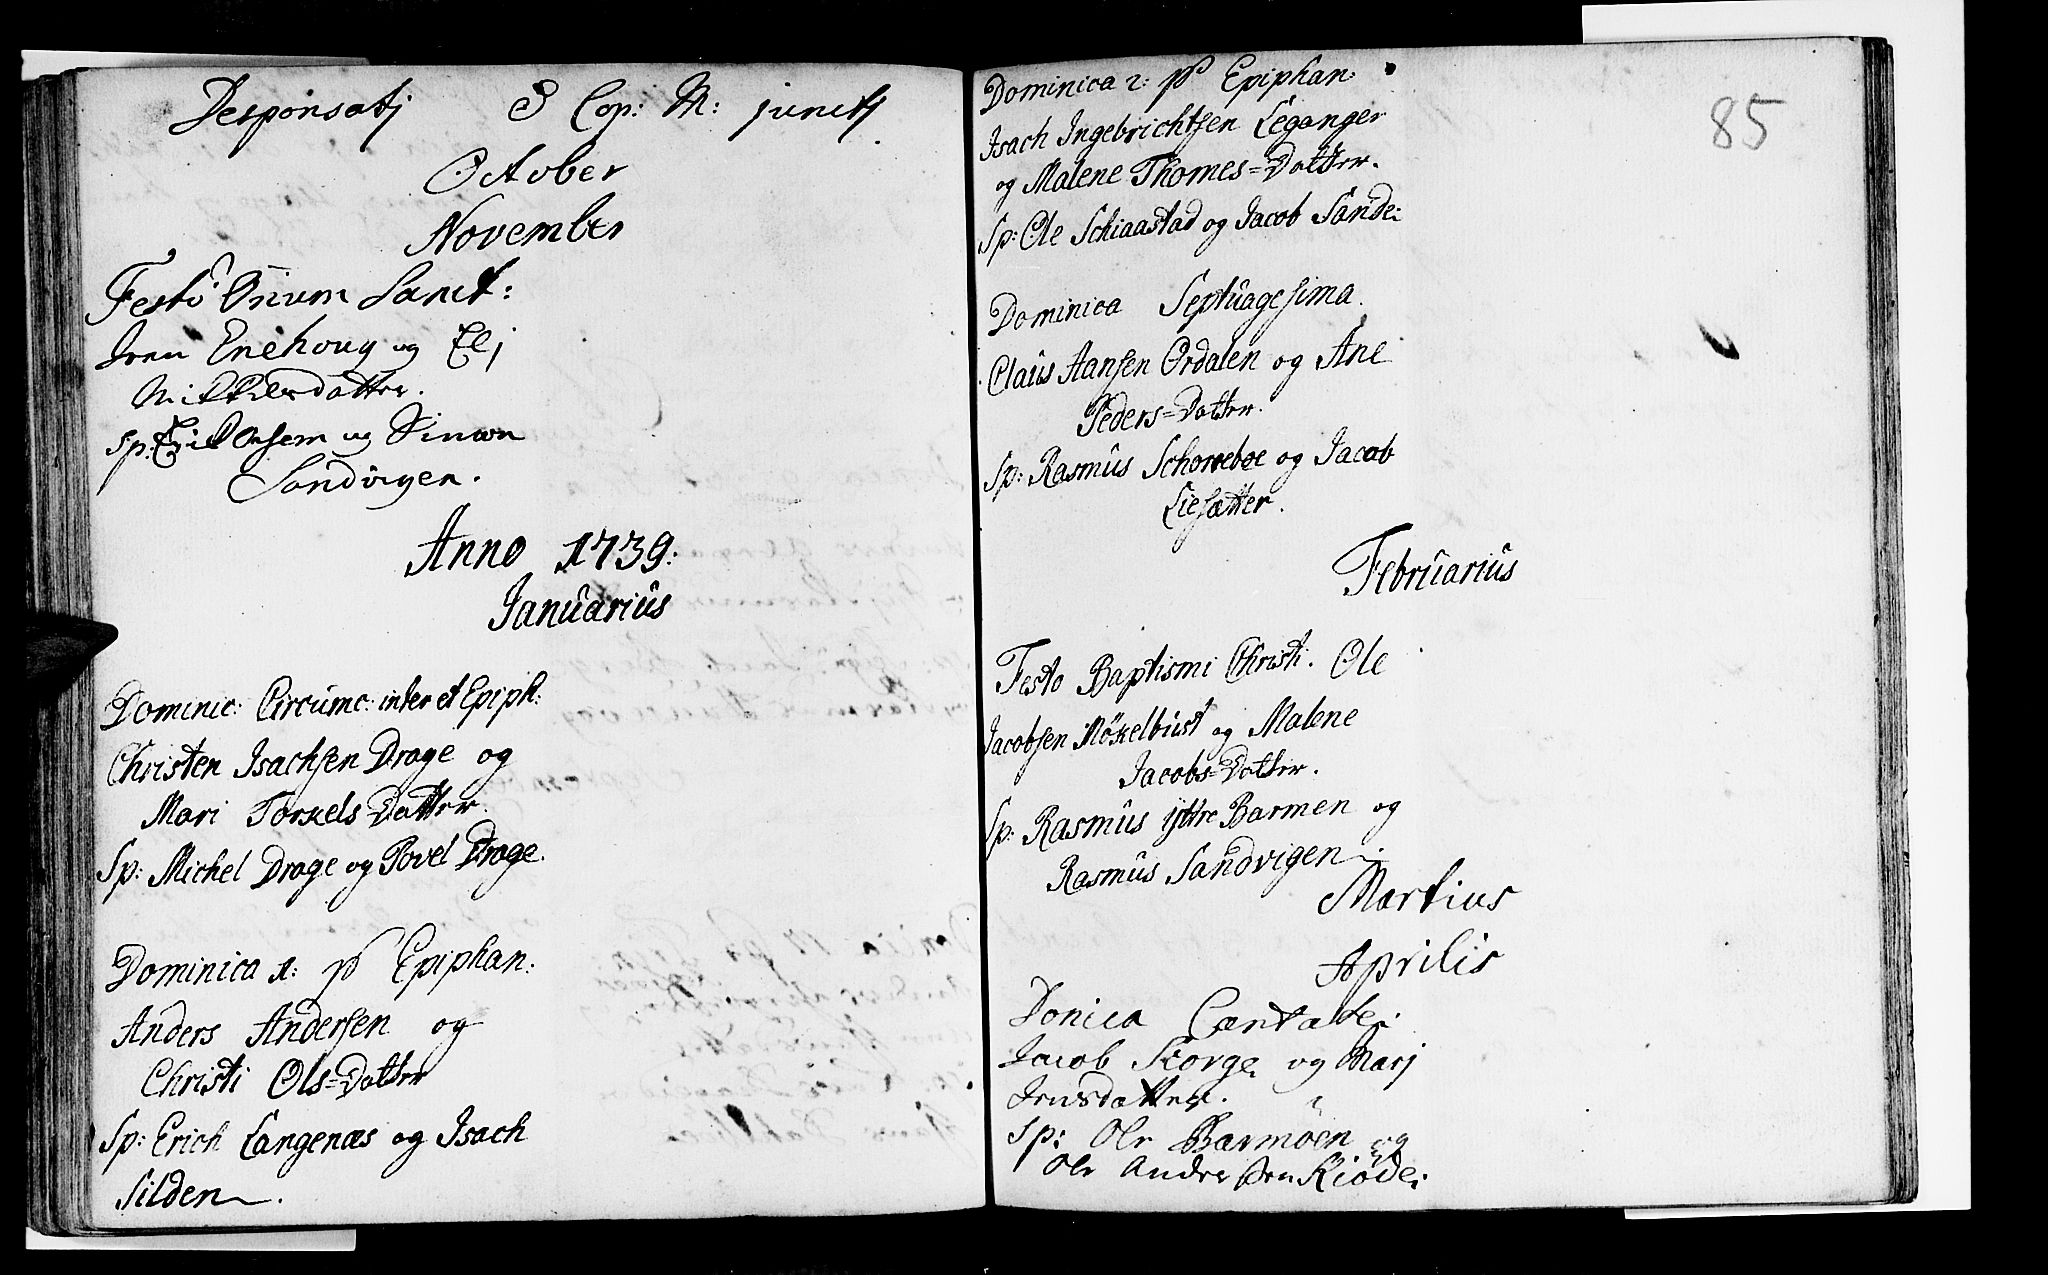 Desponsatj & Cop: M: junctj
October
November
Festo Onium Sanct:
Iven Enehoug og Elj
Mikkelsdatter.
Sp: Erik Onsem og Simon
Sandvigen.
Anno 1739:
Ianuarius
Dominic: Circumc: inter et Epiph:
Christen Isachsen Drage og
Mari Torkels Datter.
Sp: Michel Drage og Povel Drage.
Dominica 1: p Epiphan:
Anders Andersen og
Christi Ols=Datter
Sp: Erich Langenæs og Isach
Silden.
85
Dominica 2: p Epiphan:
Isach Ingebrichtsen Leganger
og Malene Thomes=Datter.
Sp: Ole Schiaastad og Iacob Sande:
Dominica Septuagesima.
Claus Hansen Ordalen og Ane
Peders=Datter.
Sp: Rasmus Schorreboe og Iacob
Liesætter.
Februarius
Festo Baptismi Christi. Ole
Iacobsen Mökelbust og Malene
Iacobs=Datter.
Sp: Rasmus ÿttre Barmen og
Rasmus Sandvigen.
Martius
Aprilis
Donica Cantate:
Jacob Storge og Marj
Jensdatter.
Sp: Ole Barmöen og
Ole Andersen Kiöde: